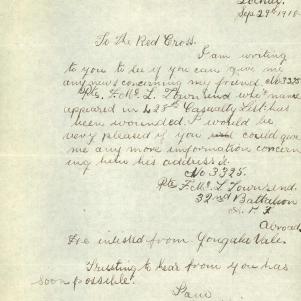 Sep 29th 1918
To The Red Cross.
I am writing
to you to see if you can give me
any news concerning my friend, No 3325
Pte. F. Mc. L. Townsend who's name
appeared in 428th Casualty List has
been wounded. I would be
very pleased if you could give
me any more information concern
ing him his address.
No 3325.
Pte F. Mc. L Townsend.
32nd Battalion
A. I. F
Abroad.
He enlisted from Yongala Vale.
Trusting to hear from you has
soon possible.
I am